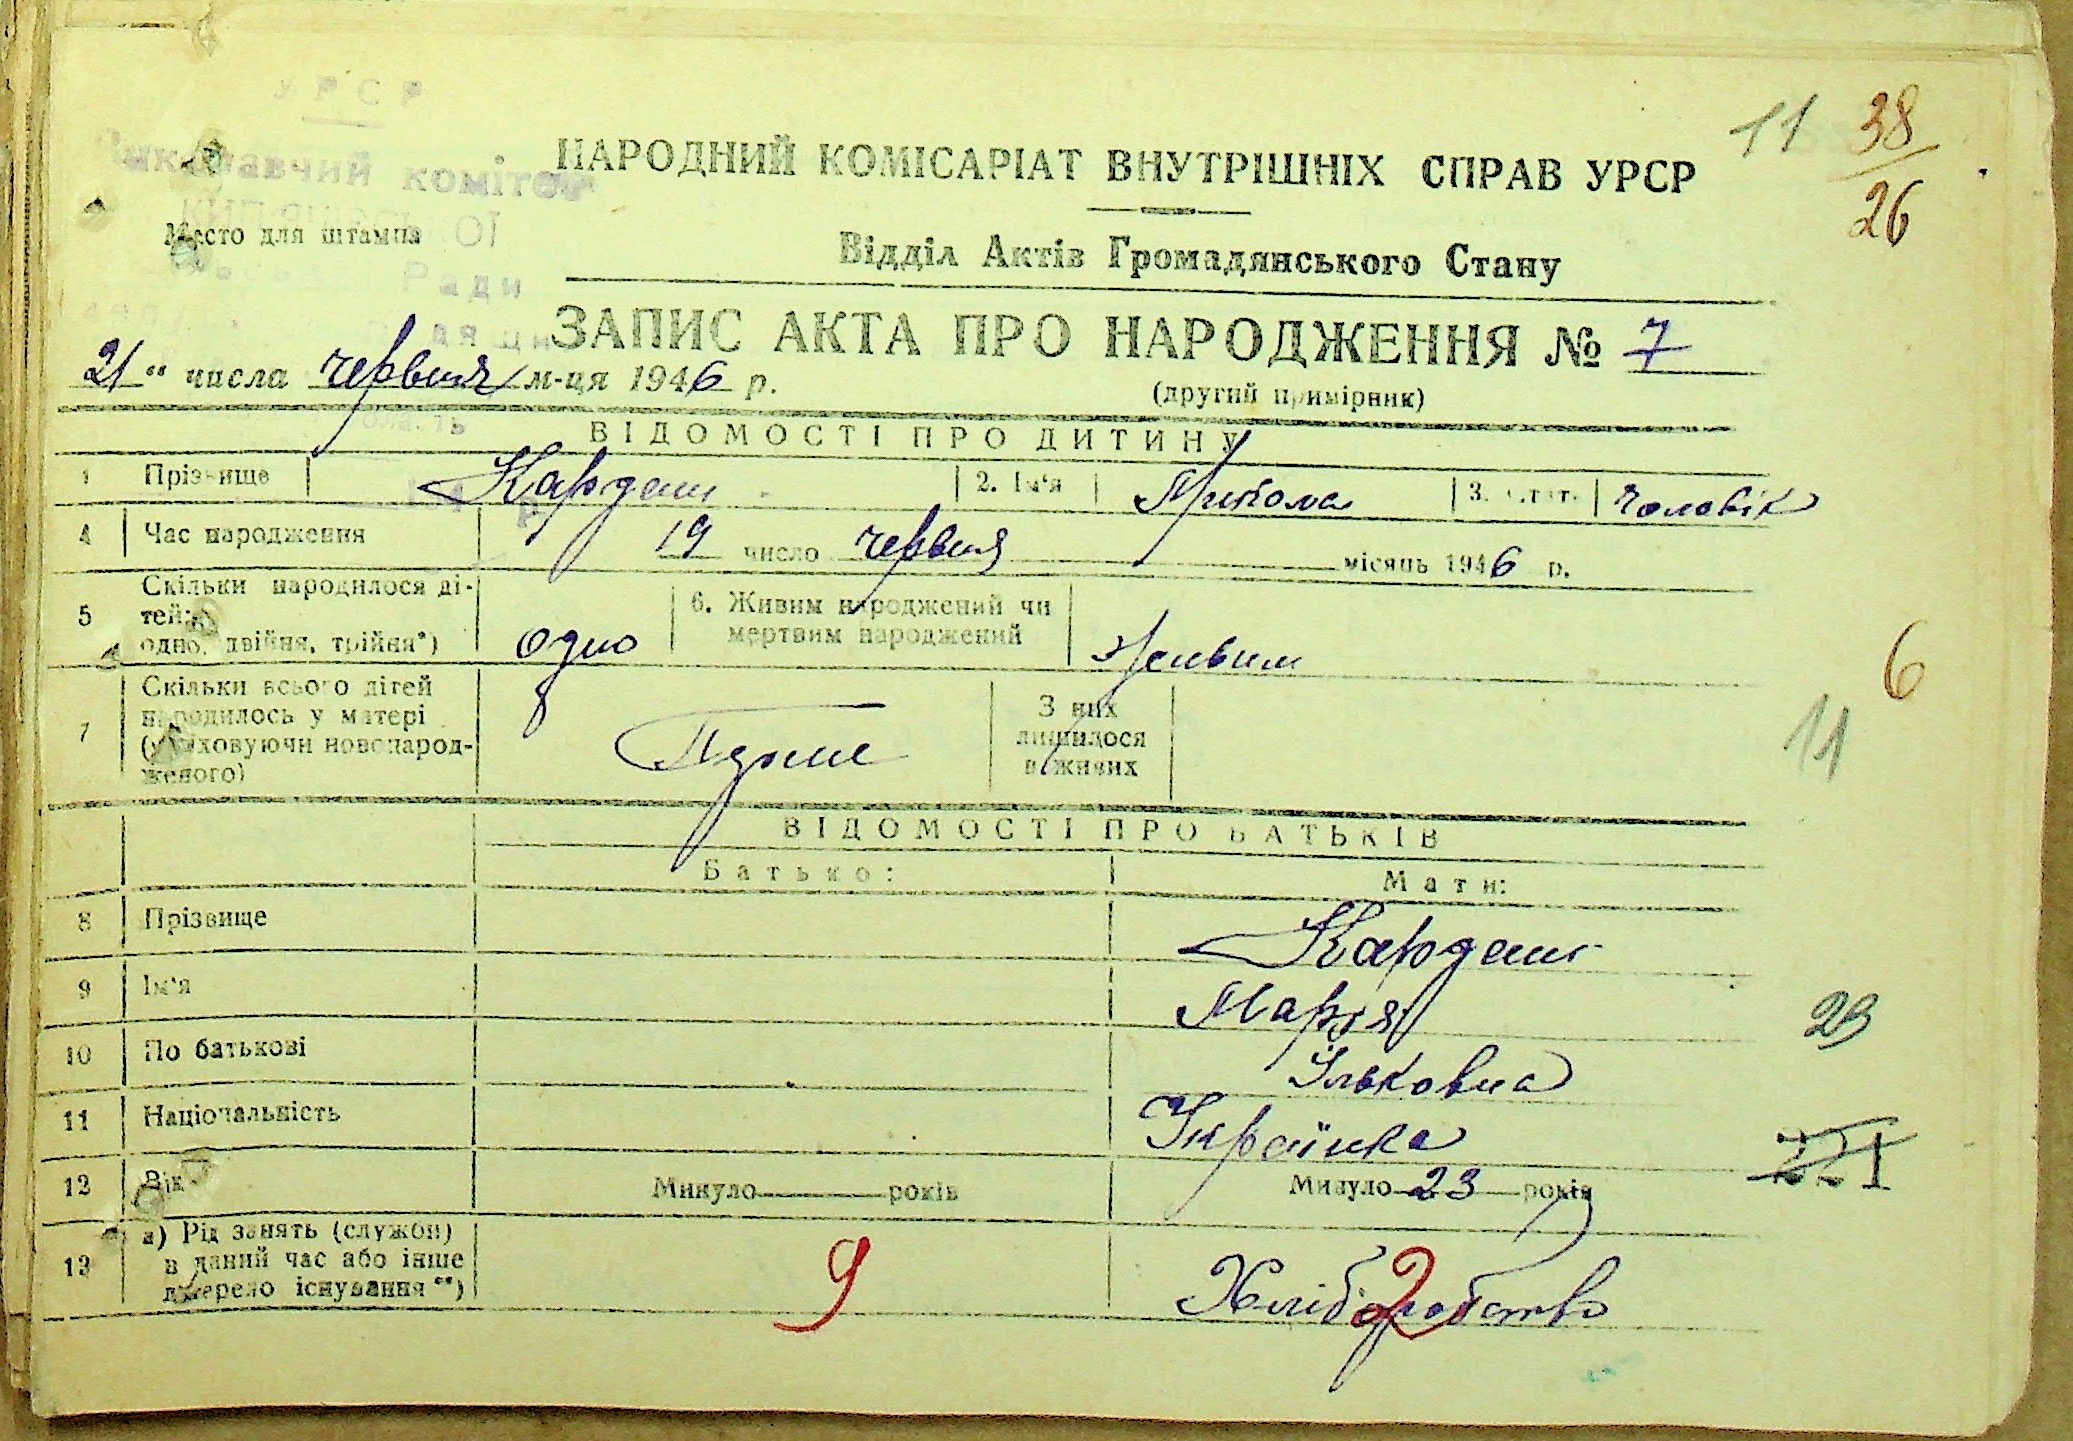 УРСР
Виконавчий комітет
Место для штампа
Ради
НАРОДНИЙ КОМІСАРІАТ ВНУТРІШНІХ СПРАВ УРСР
11 38
26
Відділ Актів Громадянського Стану
ЗАПИС АКТА ПРО НАРОДЖЕННЯ № 7
21 " числа червня м-ця 1946 р.
(другий примірник)
ВІДОМОСТІ ПРО ДИТИНУ
1 Прізвище Кардаш 2. Ім'я Микола 3. Стат. чоловік
4 Час народження 19 число червня місяць 1946 р.
5 Скільки народилося ді-
тей:
одно, двійня, трійня*) одно
6. Живим народжений чи
мертвим народжений живим
6
7 Скільки всього дітей
народилось у матері
(враховуючи новонарод-
женого) Перше
З них
лишилося
в живих
11
ВІДОМОСТІ ПРО БАТЬКІВ
Батько: Мати:
8 Прізвище Кардаш
9 Ім'я Марія
23
10 По батькові Ільковна
11 Національність Українка
12 Вік Минуло років Минуло 23 років
13 а) Рід занять (служби)
в даний час або інше
джерело існування **) 9 Хліборобство 2